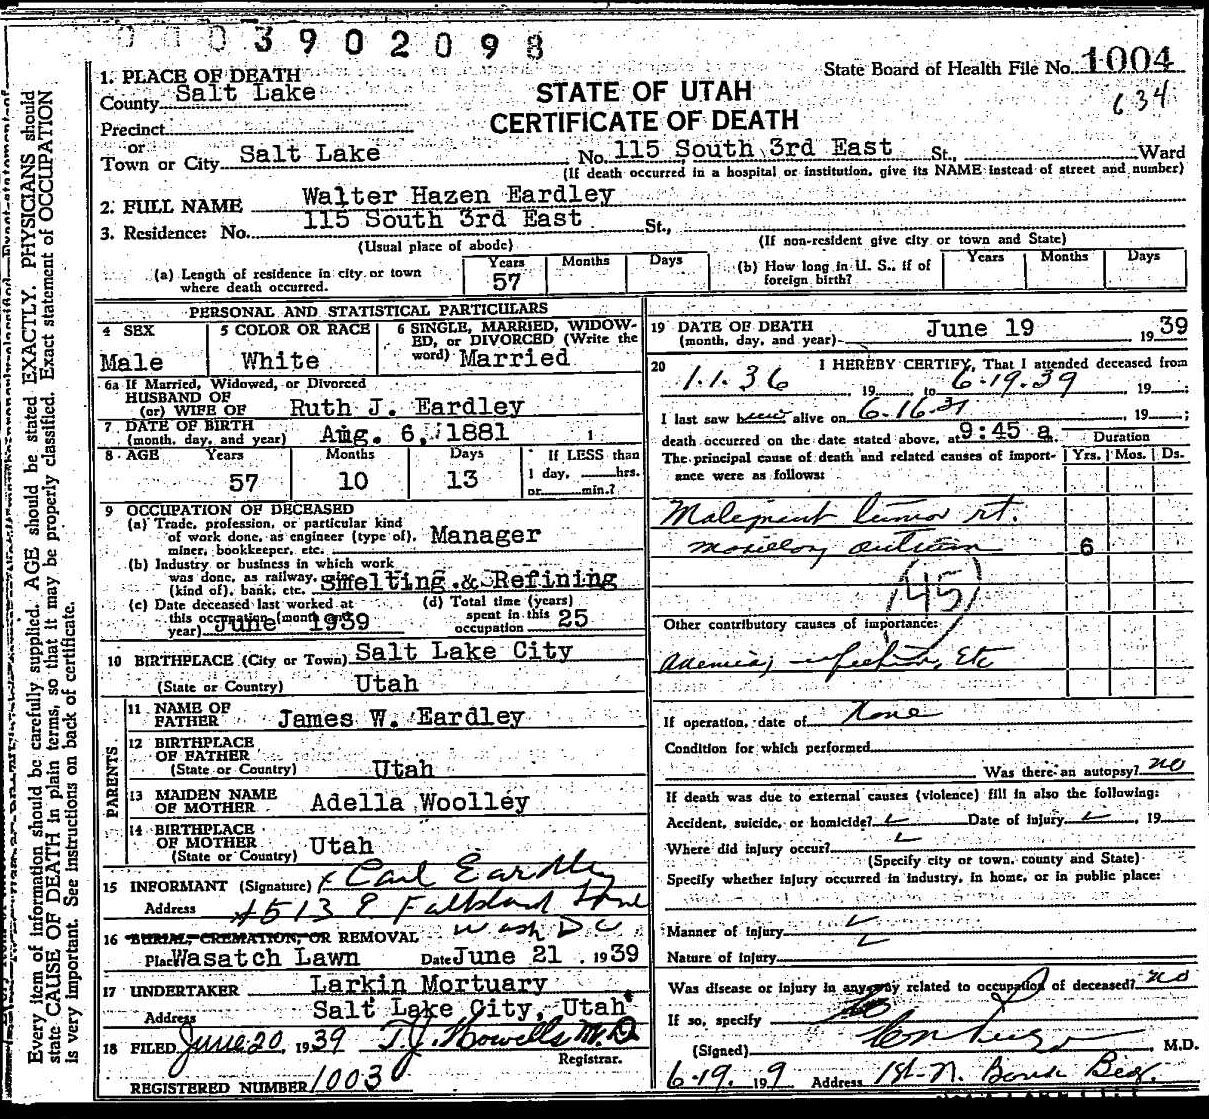 0003902098
State Board of Health File No. 1004
634
STATE OF UTAH
CERTIFICATE OF DEATH
1. PLACE OF DEATH
County Salt Lake
Precinct
or
Town or City Salt Lake No. 115 South 3rd East St., Ward
(If death occurred in a hospital or institution, give its NAME instead of street and number)
2. FULL NAME Walter Hazen Eardley
3. Residence: No. 115 South 3rd East St.,
(Usual place of abode) (If non-resident give city or town and State)
(a) Length of residence in city or town where death occurred. Years 57 Months Days
(b) How long in U. S., if of foreign birth? Years Months Days
PERSONAL AND STATISTICAL PARTICULARS
4 SEX Male
5 COLOR OR RACE White
6 SINGLE, MARRIED, WIDOW-
ED, or DIVORCED (Write the
word) Married
6a If Married, Widowed, or Divorced
HUSBAND OF
(or) WIFE OF Ruth J. Eardley
7 DATE OF BIRTH
(month, day, and year) Aug. 6, 1881
8 AGE Years 57 Months 10 Days 13
If LESS than
1 day, hrs.
or min.?
9 OCCUPATION OF DECEASED
(a) Trade, profession, or particular kind
of work done, as engineer (type of),
miner, bookkeeper, etc. Manager
(b) Industry or business in which work
was done, as railway,
(kind of), bank, etc. Smelting & Refining
(c) Date deceased last worked at
this occupation (month and
year) June 1939
(d) Total time (years)
spent in this
occupation 25
10 BIRTHPLACE (City or Town) Salt Lake City
(State or Country) Utah
PARENTS
11 NAME OF
FATHER James W. Eardley
12 BIRTHPLACE
OF FATHER
(State or Country) Utah
13 MAIDEN NAME
OF MOTHER Adella Woolley
14 BIRTHPLACE
OF MOTHER
(State or Country) Utah
15 INFORMANT (Signature) x Carl Eardley
Address 4513 E
Wash D C
16 BURIAL, CREMATION, OR REMOVAL
Place Wasatch Lawn Date June 21, 1939
17 UNDERTAKER Larkin Mortuary
Address Salt Lake City, Utah
18 FILED June 20, 1939 T.J. Howells M.D.
Registrar.
REGISTERED NUMBER 1003
19 DATE OF DEATH
(month, day, and year) June 19 1939
20 I HEREBY CERTIFY, That I attended deceased from
1.1.36 19 to 6.19.39 19 ;
I last saw him alive on 6-16-39 19 ;
death occurred on the date stated above, at 9:45 a
Duration
The principal cause of death and related causes of import-
ance were as follows:
Yrs. Mos. Ds.
Malignant tumor rt.
maxillary antrum 6
(45)
Other contributory causes of importance:
Anemia, infection, Etc
If operation, date of None
Condition for which performed
Was there an autopsy? no
If death was due to external causes (violence) fill in also the following:
Accident, suicide, or homicide? Date of injury , 19
Where did injury occur?
(Specify city or town, county and State)
Specify whether injury occurred in industry, in home, or in public place:
Manner of injury
Nature of injury
Was disease or injury in any way related to occupation of deceased? no
If so, specify
(Signed) M.D.
6-19. 19 9 Address 1st N. Bank Bldg.
Every item of information should be carefully supplied. AGE should be stated EXACTLY. PHYSICIANS should
state CAUSE OF DEATH in plain terms, so that it may be properly classified. Exact statement of OCCUPATION
is very important. See instructions on back of certificate.